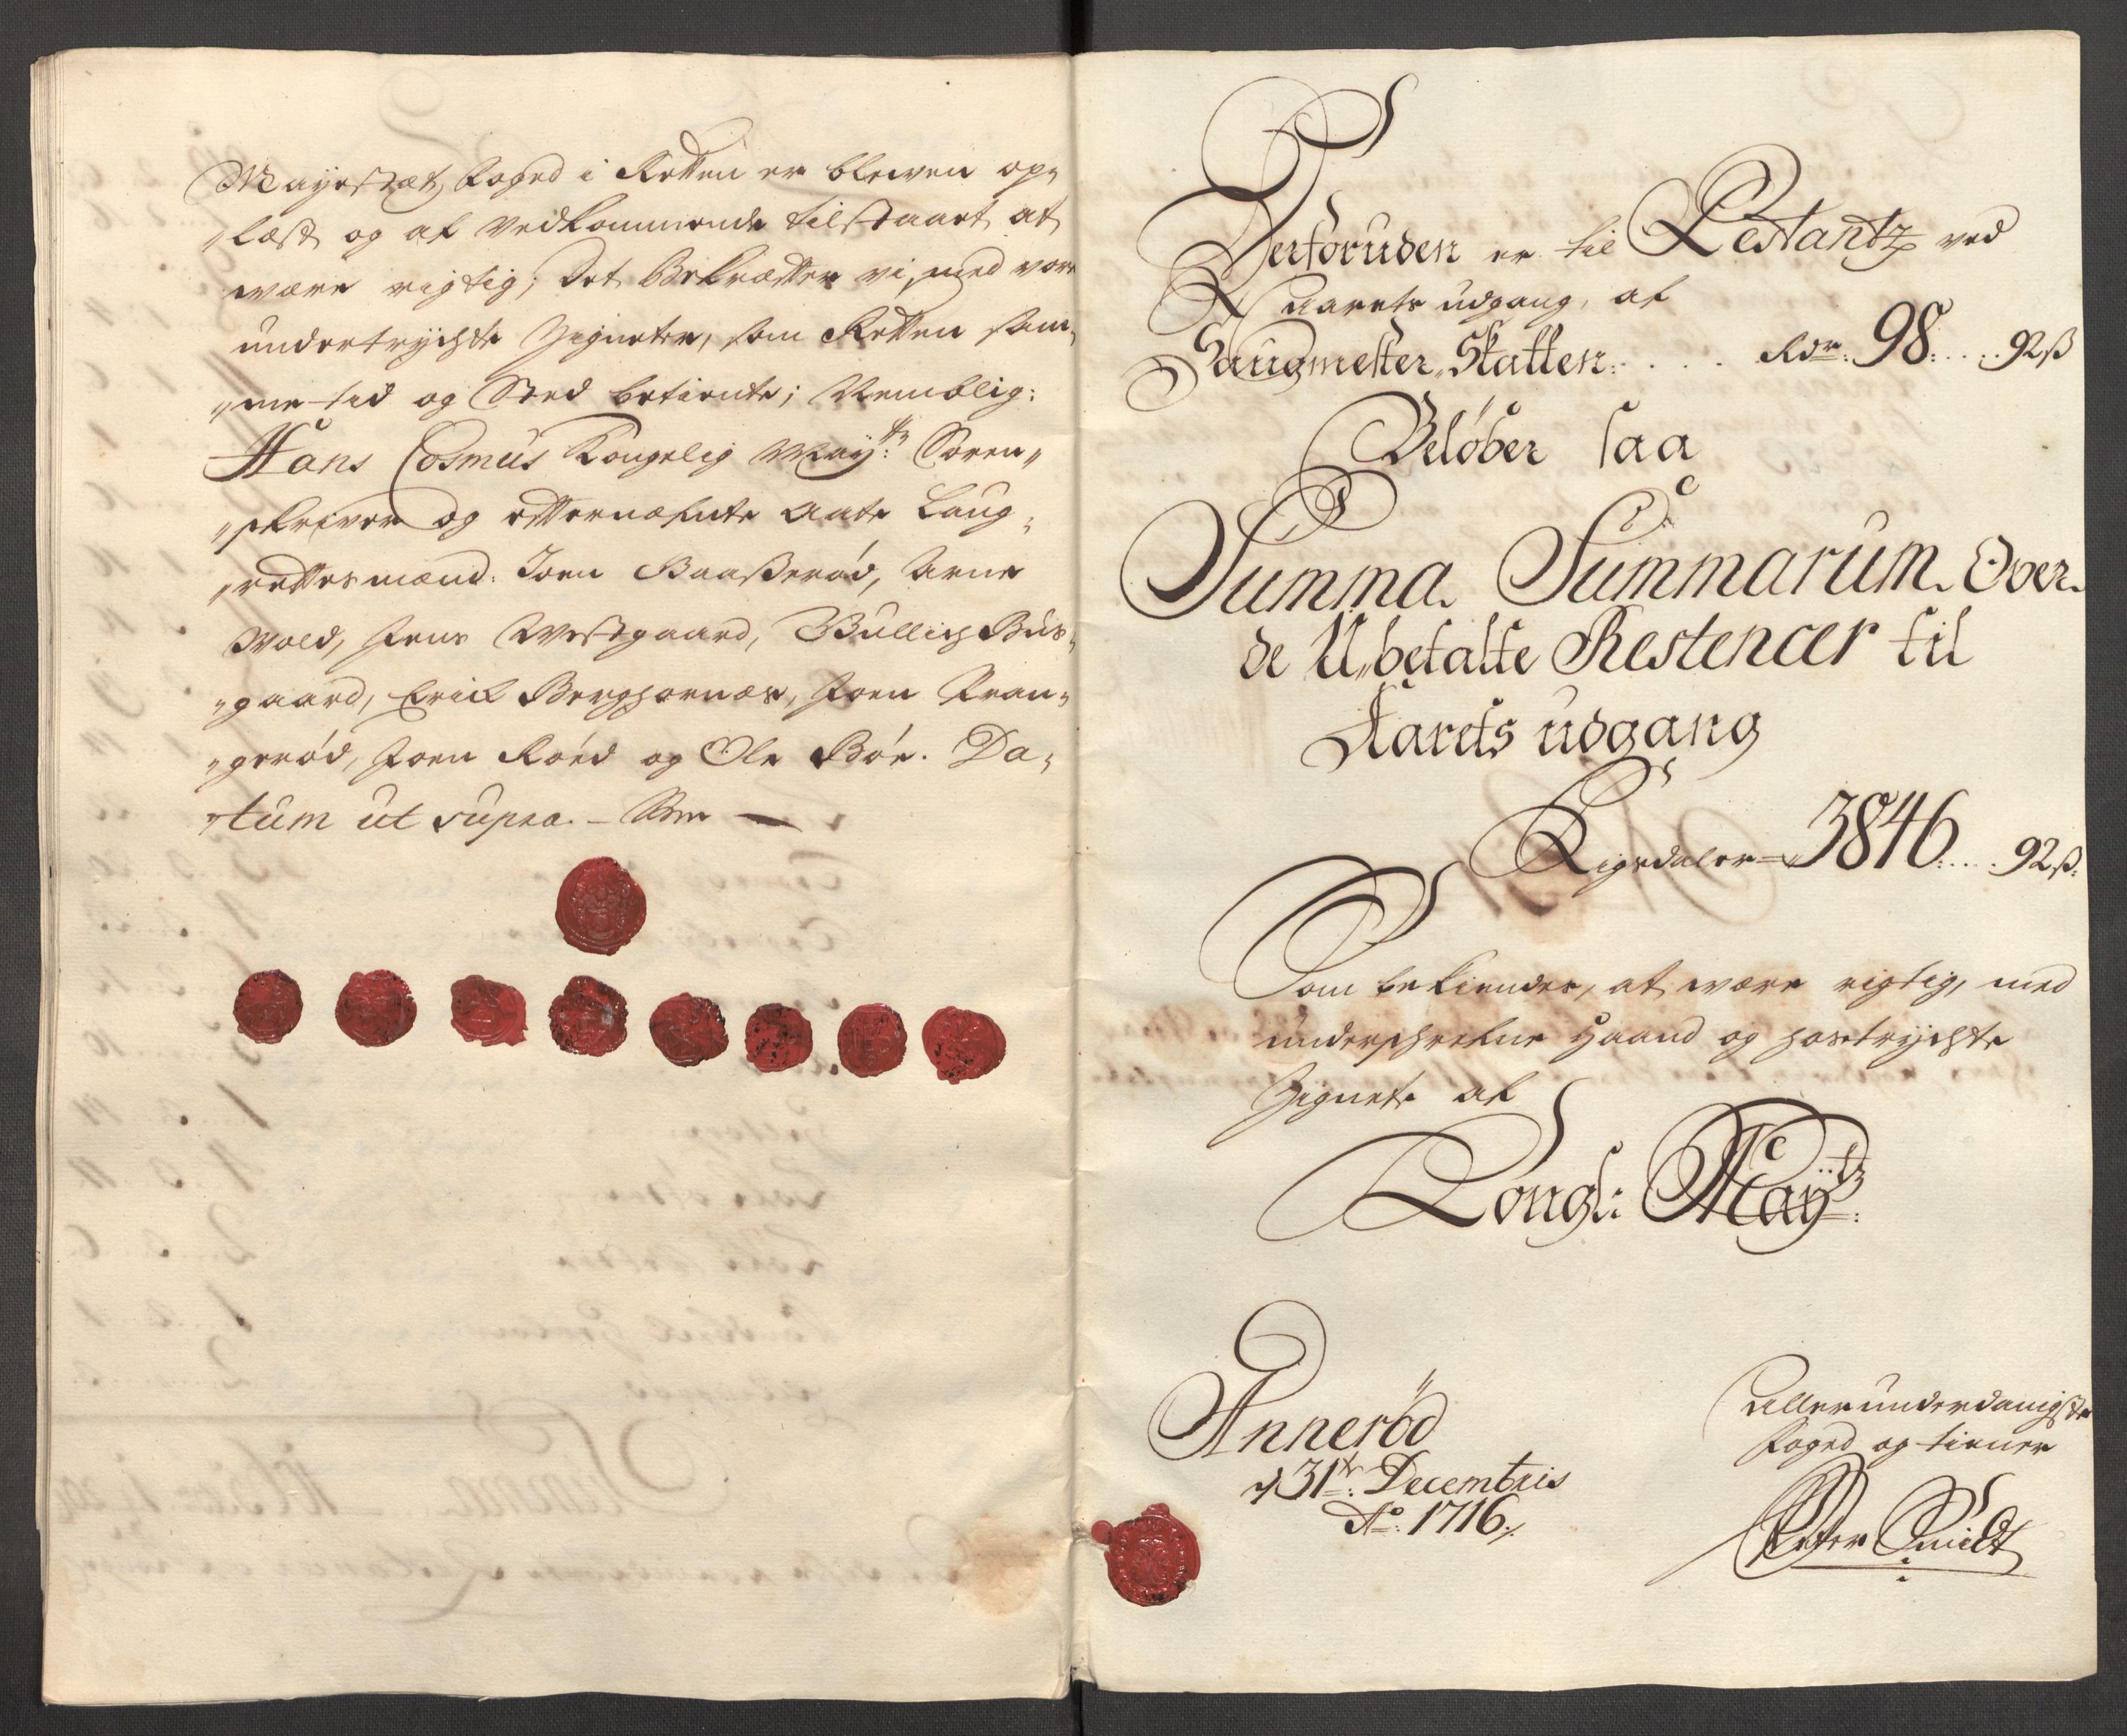 Mayestæt, foged i Retten er bleven op„
„læst og af vedkommende tilstaaet at
være rigtig; Det Bekræfter vi, med vore
undertrychte Zigneter, som Retten sam„
„me tid og Sted betiente; Nemblig:
Hans Cosmus Kongelig May:ttz Soren„
„skriver og efternæfnte aate Laug„
„rettesmænd: Joen Baasserød, Arne
Wold, Jens Westgaard, Bullich Bus„
„gaard, Erich Berghornæs, Joen Kran„
„gerød, Joen Röed og Ole Böe. Da„
„tum ut supra. –
Derforuden er til Restantz ved
Aarets udgang, af
Saugmester Skatten: . . . . Rdr: 98: . . . 92 ß
Belöber saa
Summa Summarum Over
de Ubetalte Restencer til
Aarets udgang
Rigsdaler 3846: . . . 92 ß:
Som bekiendes, at være rigtig, med
underschrefne Haand og hostrychte
Zignete af
Kongl: Mayttz:
Annerød
d 31te: Decembris
Ao: 1716
Allerunderdanigste
foged og tiener
Peter Smidt